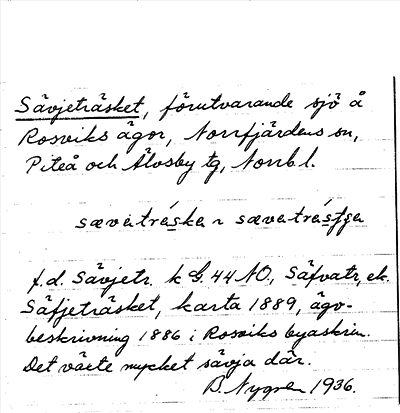 Sävjeträsket, förutvarande sjö å
Rosviks ägor, Norrfjärdens sn,
Piteå och Älvsby tg, Norrb l.
sævatráska ~ sævatrástga
f.d. Sävjetr. k G. 44 NO, Säfvatr, ek.
Säfjeträsket, karta 1889, ägo-
beskrivning 1886 i Rosviks byaskrin.
Det växte mycket sävja där.
B. Nygren 1936.